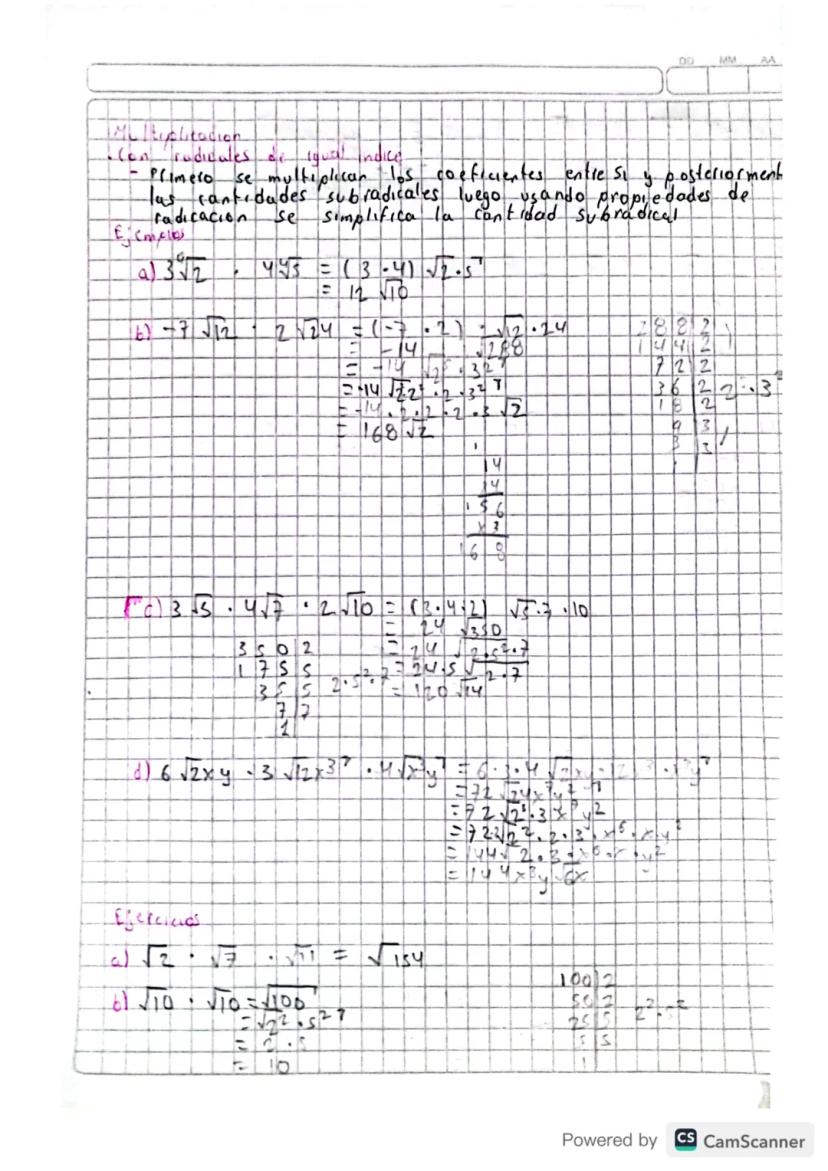 DD MM AA
Multiplicacion
. Con radicales de igual indice
- Primero se multiplican los coeficientes entre si y posteriorment
las cantidades subradicales luego usando propiedades de
radicacion se simplifica la cantidad subradical
Ejemplos
a) 3∜2 · 4∜5 = (3·4) √2·5
= 12 √10
b) -7 √12 · 2 √24 = (-7 · 2) · √12 · 24
= -14 √288
= -14 √2⁵ · 3²
= -14 √2²2² · 2 · 3²
= -14 · 2 · 2 · 2 · 3 √2
= 168 √2
288 | 2
144 | 2
72 | 2
36 | 2
18 | 2
9 | 3
3 | 3
1
14
14
56
x 3
168
c) 3 √5 · 4√7 · 2 √10 = (3·4·2) √5·7·10
= 24 √350
= 24 √2·5²·7
= 24·5 √2·7
= 120 √14
350 | 2
175 | 5
35 | 5
7 | 7
1
2·5²·7
d) 6 √2xy · 3 √12x³ · 4√x³y = 6·3·4
= 72 √24x⁷y²
= 72 √2³·3x⁷y²
= 722√2²·2·3·x⁶·x·y²
= 144√2·3·x⁶·x·y²
= 144x³y √6x
Ejercicios
a) √2 · √7 · √11 = √154
b) √10 · √10 = √100
= √2²·5²
= 2·5
= 10
100 | 2
50 | 2
25 | 5
5 | 5
1
2²·5²
Powered by CS CamScanner